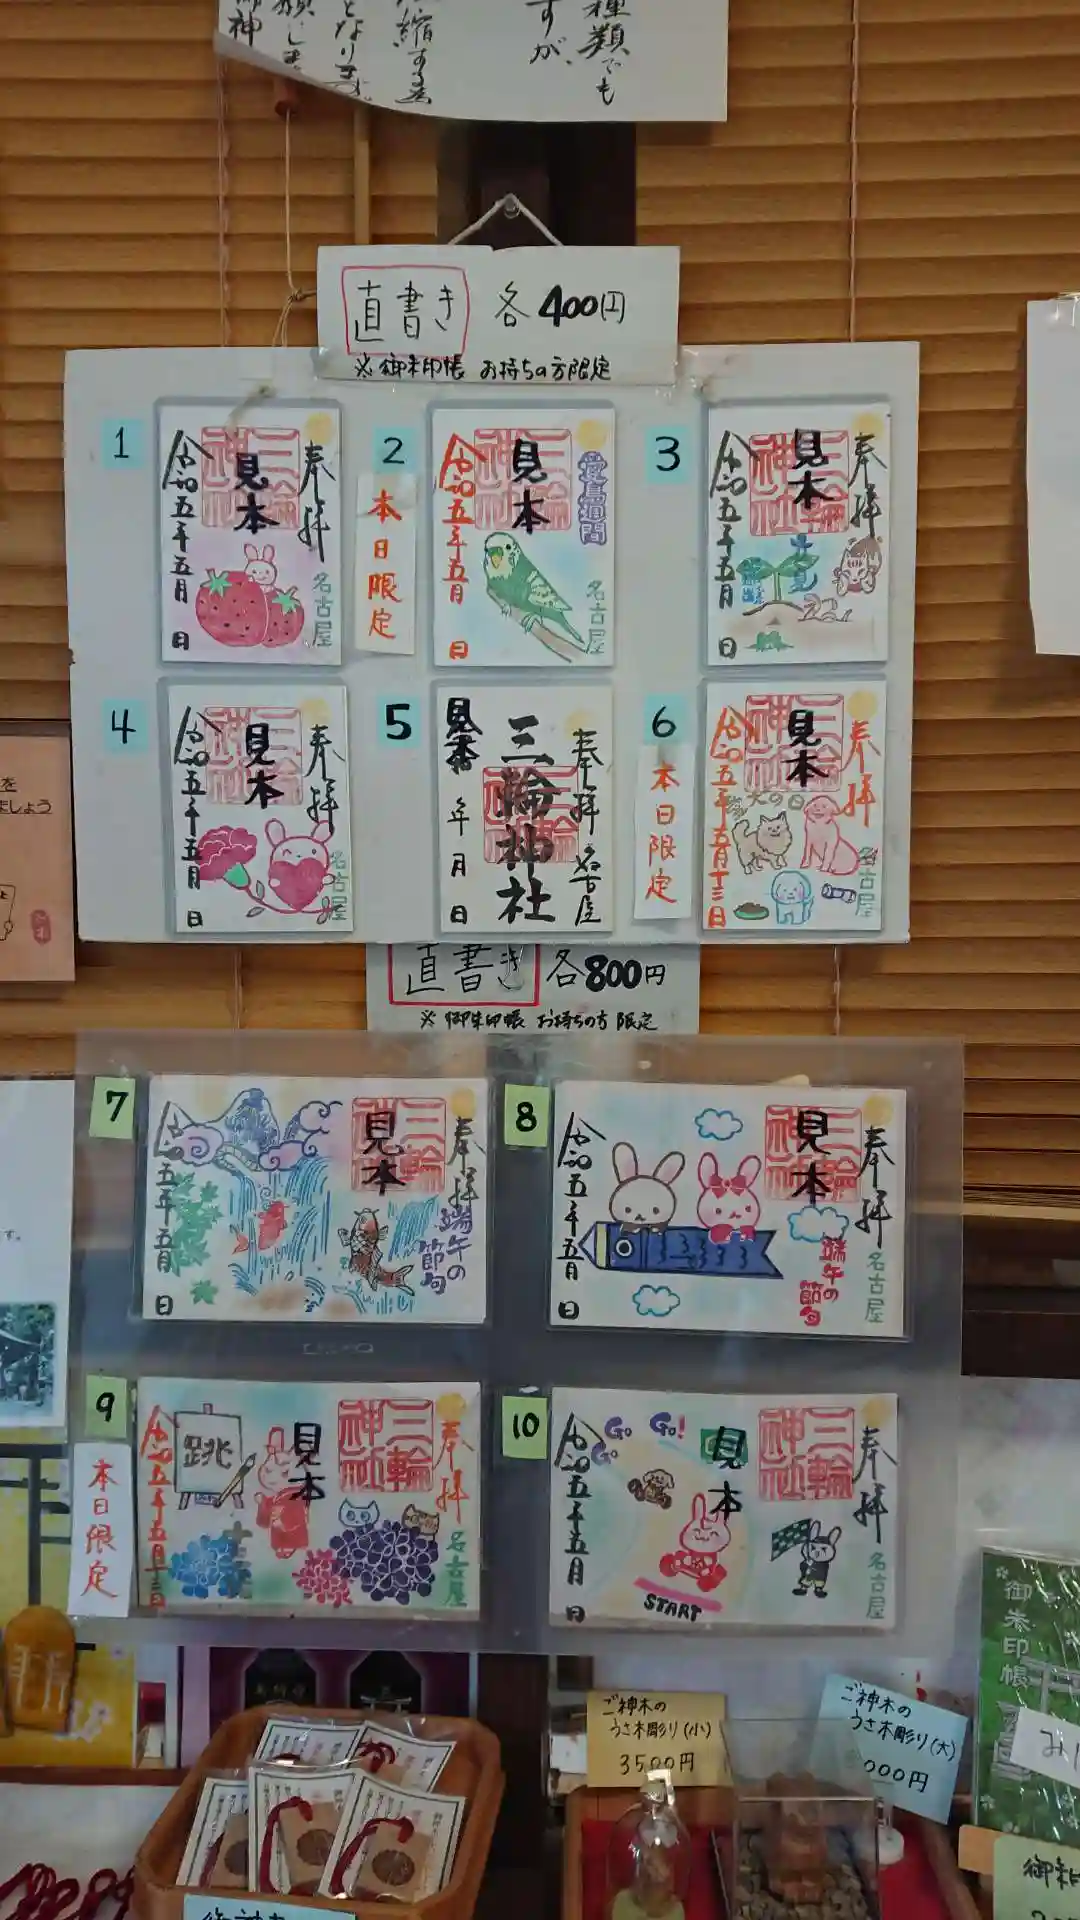 種類でも
すが、
縮する為
となります。
御神
直書き 各400円
※御朱印帳 お持ちの方限定
1
奉拝
三輪神社
見本
令和五年五月 日
名古屋
2
本日限定
愛鳥週間
三輪神社
見本
令和五年五月 日
名古屋
3
奉拝
三輪神社
見本
立夏
令和五年五月 日
4
奉拝
三輪神社
見本
令和五年五月 日
名古屋
5
奉拝 名古屋
三輪神社
見本
年 月 日
6
本日限定
奉拝
三輪神社
見本
犬の日
令和五年五月十三日
名古屋
直書き 各800円
※御朱印帳 お持ちの方限定
7
奉拝
三輪神社
見本
端午の
節句
令和五年五月 日
8
奉拝
三輪神社
見本
端午の
節句
令和五年五月 日
名古屋
9
本日限定
奉拝
三輪神社
見本
跳
令和五年五月十三日
名古屋
10
奉拝
三輪神社
見本
Go Go Go!
START
令和五年五月 日
名古屋
を
ましょう
す。
ご神木の
うさ木彫り(小)
3500円
ご神木の
うさ木彫り(大)
000円
御朱印帳